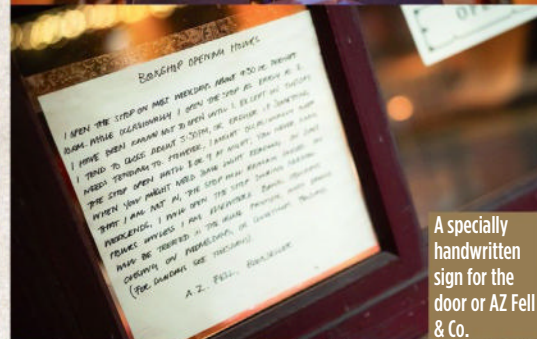 OPEN
BOOKSHOP OPENING HOURS
I OPEN THE SHOP ON MOST WEEKDAYS ABOUT 9.30 OR PERHAPS
10AM. WHILE OCCASIONALLY I OPEN THE SHOP AS EARLY AS 8,
I HAVE BEEN KNOWN NOT TO OPEN UNTIL 1, EXCEPT ON TUESDAY.
I TEND TO CLOSE ABOUT 3.30PM, OR EARLIER IF SOMETHING
NEEDS TENDING TO. HOWEVER, I MIGHT OCCASIONALLY KEEP
THE SHOP OPEN UNTIL 8 OR 9 AT NIGHT, YOU NEVER KNOW
WHEN YOU MIGHT NEED SOME LIGHT READING. ON DAYS
THAT I AM NOT IN, THE SHOP WILL REMAIN CLOSED. ON
WEEKENDS, I WILL OPEN THE SHOP DURING NORMAL
HOURS UNLESS I AM ELSEWHERE. BANK HOLIDAYS
WILL BE TREATED IN THE USUAL FASHION, WITH EARLY
CLOSING ON WEDNESDAYS, OR SOMETIMES FRIDAYS.
(FOR SUNDAYS SEE TUESDAYS)
A.Z. FELL, BOOKSELLER
A specially
handwritten
sign for the
door or AZ Fell
& Co.